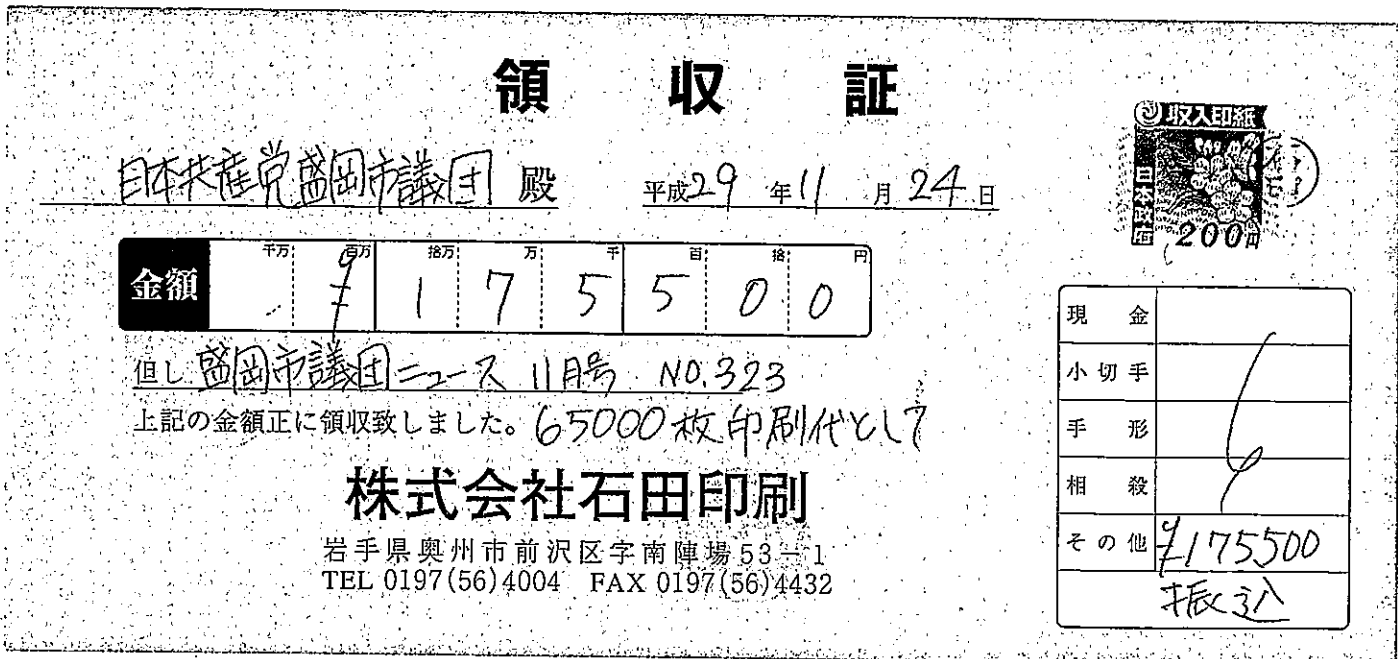 領収証
日本共産党盛岡市議団 殿
平成29年11月24日
収入印紙
日本政府
200円
金額 千万 百万 拾万 万 千 百 拾 円
¥175500
但し 盛岡市議団ニュース 11月号 NO.323
上記の金額正に領収致しました。65000枚印刷代として
株式会社石田印刷
岩手県奥州市前沢区字南陣場53-1
TEL 0197(56)4004 FAX 0197(56)4432
現金
小切手
手形
相殺
その他 ¥175500
振込